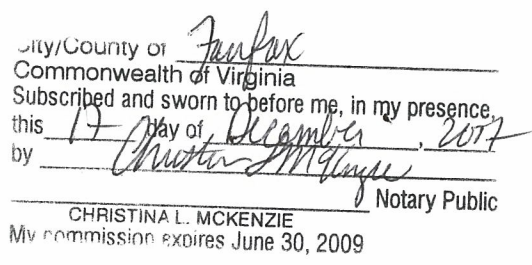 City/County of Fairfax
Commonwealth of Virginia
Subscribed and sworn to before me, in my presence,
this 17 day of December, 2007
by Christina L McKenzie
Notary Public
CHRISTINA L. MCKENZIE
My commission expires June 30, 2009